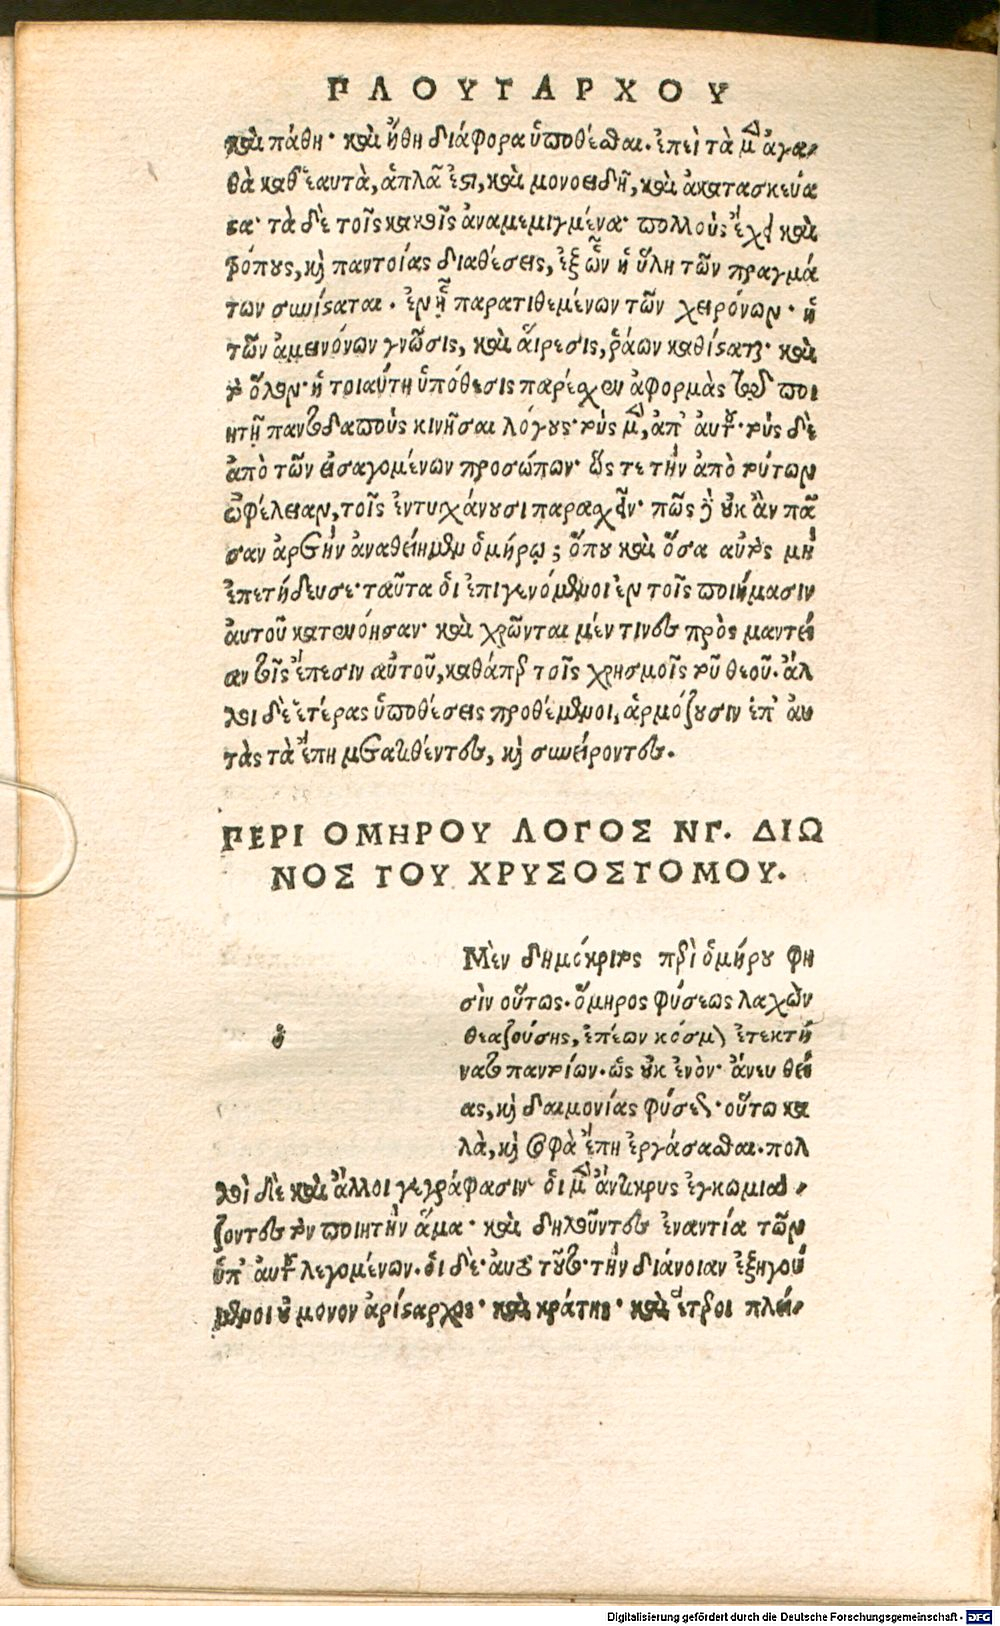 ΠΛΟΥΤΑΡΧΟΥ
καὶ πάθη· καὶ ἤθη διάφορα ὑποθέσθαι. ἐπεὶ τὰ μὲν ἀγα-
θὰ καθ' ἑαυτὰ, ἁπλᾶ ἐστι, καὶ μονοειδῆ, καὶ ἀκατασκεύα
στα· τὰ δὲ τοῖς κακοῖς ἀναμεμιγμένα· πολλοὺς ἔχει καὶ
τρόπους, καὶ παντοίας διαθέσεις, ἐξ ὧν ἡ ὕλη τῶν πραγμά
των συνίσταται. ἐν ᾗ παρατιθεμένων τῶν χειρόνων· ἡ
τῶν ἀμεινόνων γνῶσις, καὶ αἵρεσις, ῥάων καθίσταται· καὶ
τὸ ὅλον· ἡ τοιαύτη ὑπόθεσις παρέσχεν ἀφορμὰς τῷ ποι
ητῇ παντοδαποὺς κινῆσαι λόγους· τοὺς μὲν, ἀπ' αὐτοῦ· τοὺς δὲ
ἀπὸ τῶν εἰσαγομένων προσώπων· ὥς τε τὴν ἀπὸ τούτων
ὠφέλειαν, τοῖς ἐντυγχάνουσι παρασχεῖν· πῶς γὰρ οὐκ ἂν πᾶ
σαν ἀρετὴν ἀναθείημεν ὁμήρῳ; ὅπου καὶ ὅσα αὐτὸς μὴ
ἐπετήδευσε· ταῦτα ὁι ἐπιγενόμενοι ἐν τοῖς ποιήμασιν
ἀυτοῦ κατενόησαν· καὶ χρῶνται μέν τινες πρὸς μαντεί
αν τοῖς ἔπεσιν αὐτοῦ, καθάπερ τοῖς χρησμοῖς τοῦ θεοῦ. ἄλ
λοι δὲ ἑτέρας ὑποθέσεις προθέμενοι, ἁρμόζουσιν ἐπ' ἀυ
τὰς τὰ ἔπη μετατιθέντες, καὶ συνείροντες.
ΠΕΡΙ ΟΜΗΡΟΥ ΛΟΓΟΣ ΝΓ. ΔΙΩ
ΝΟΣ ΤΟΥ ΧΡΥΣΟΣΤΟΜΟΥ.
ὁ
Μὲν δημόκριτος περὶ ὁμήρου φη
σὶν οὕτως. ὅμηρος φύσεως λαχὼν
θεαζούσης, ἐπέων κόσμον ἐτεκτή
νατο παντοίων. ὡς οὐκ ἐνὸν· ἄνευ θεί
ας, καὶ δαιμονίας φύσεως· οὕτω κα
λὰ, καὶ σοφὰ ἔπη ἐργάσασθαι. πολ
λοὶ δὲ καὶ ἄλλοι γεγράφασιν· ὁι μὲν ἄντικρυς ἐγκωμιά-
ζοντες τὸν ποιητὴν ἅμα· καὶ δηλοῦντες ἐναντία τῶν
ὑπ' ἀυτοῦ λεγομένων. ὁι δὲ· ἀυτὸ τοῦτο· τὴν διάνοιαν ἐξηγού
μενοι οὐ μονον ἀρίσταρχος· καὶ κράτης· καὶ ἕτεροι πλεί-
Digitalisierung gefördert durch die Deutsche Forschungsgemeinschaft - DFG